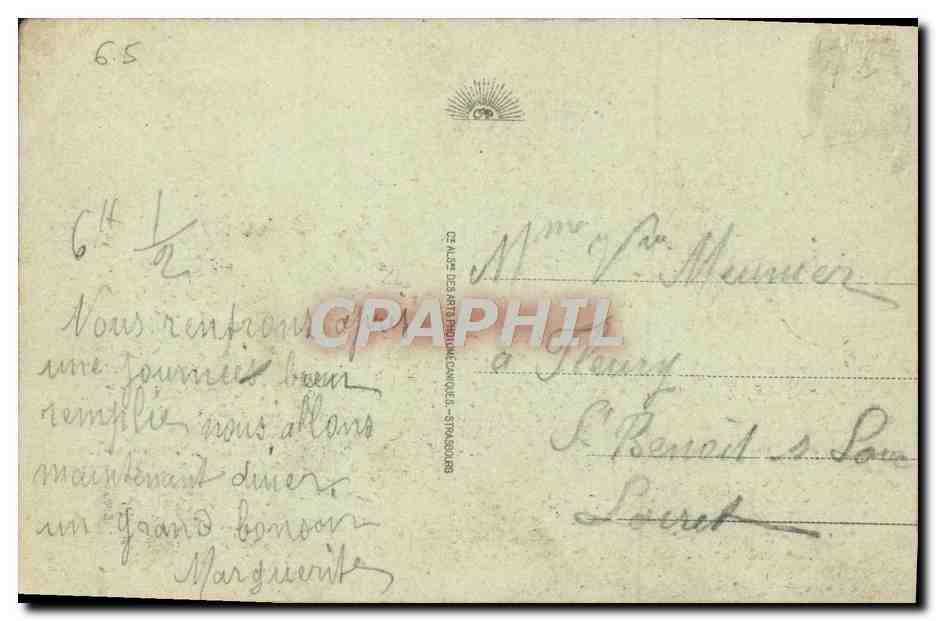 6.5
6H 1/2
Nous rentrons après
une journées bien
remplie nous allons
maintenant diner.
un grand bonsoir
Marguerite
CIE ALSNE DES ARTS PHOTOMÉCANIQUES. - STRASBOURG
CAP
Mme Vve Meunier
à Fleury
St Benoît s Loire
Loiret
CPAPHIL